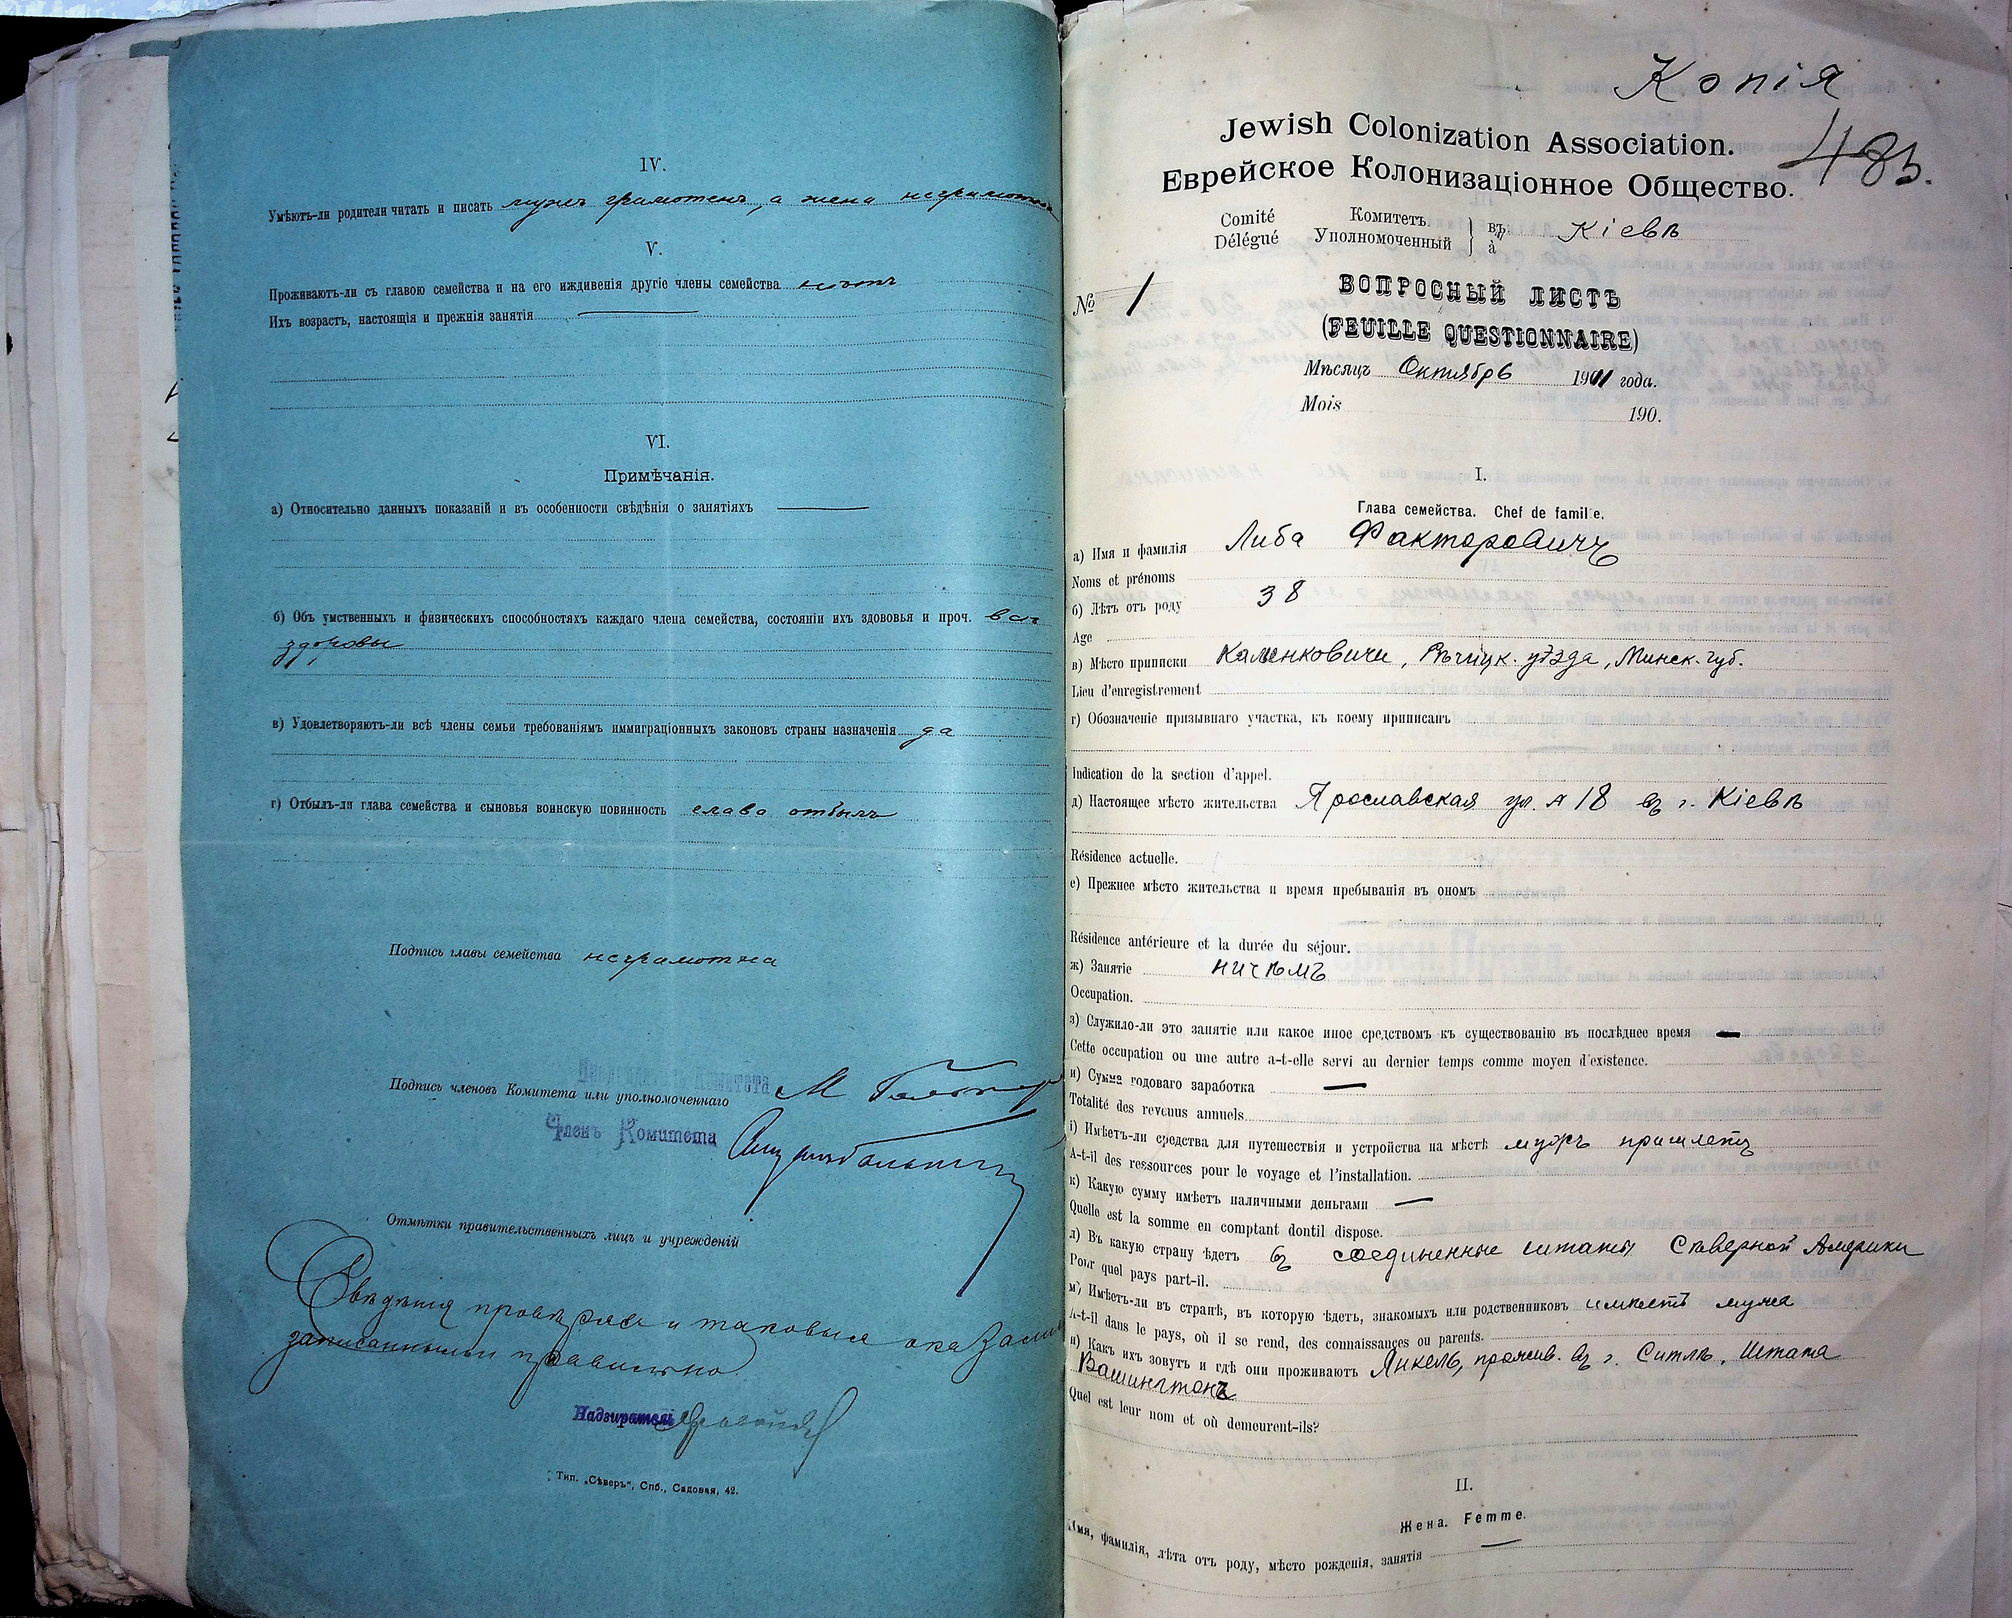 IV.
Умѣютъ-ли родители читать и писать мужъ грамотенъ, а жена неграмотна
V.
Проживаютъ-ли съ главою семейства и на его иждивенія другіе члены семейства нѣтъ
Ихъ возрастъ, настоящія и прежнія занятія
VI.
Примѣчанія.
а) Относительно данныхъ показаній и въ особенности свѣдѣнія о занятіяхъ
б) Объ умственныхъ и физическихъ способностяхъ каждаго члена семейства, состояніи ихъ здововья и проч. всѣ
здоровы
в) Удовлетворяютъ-ли всѣ члены семьи требованіямъ иммиграціонныхъ законовъ страны назначенія да
г) Отбылъ-ля глава семейства и сыновья воинскую повинность глава отбылъ
Подпись главы семейства неграмотна
Подпись членовъ Комитета или уполномоченнаго М
Членъ Комитета
Отмѣтки правительственныхъ лицъ и учрежденій
Свѣдѣнія провѣрял и таковыя оказались
записанными правильно.
Надзиратель
Тип. „Сѣверъ", Спб., Садовая, 42.
Копія
483.
Jewish Colonization Association.
Еврейское Колонизаціонное Общество.
Comité Комитетъ въ Кіевѣ
Délégué Уполномоченный à
№ 1
ВОПРОСНЫЙ ЛИСТЪ
(FEUILLE QUESTIONNAIRE)
Мѣсяцъ Октябрь 1911 года.
Mois 190 .
I.
Глава семейства. Chef de famille.
а) Имя и фамилія Либа Факторовичъ
Noms et prénoms
б) Лѣтъ отъ роду 38
Age
в) Мѣсто приписки Каленковичи, Рѣчицк. уѣзда, Минск. губ.
Lieu d'enregistrement
г) Обозначеніе призывнаго участка, къ коему приписанъ
Indication de la section d'appel.
д) Настоящее мѣсто жительства Ярославская ул. № 18 въ г. Кіевѣ
Résidence actuelle.
е) Прежнее мѣсто жительства и время пребыванія въ ономъ
Résidence antérieure et la durée du séjour.
ж) Занятіе ничѣмъ
Occupation.
з) Служило-ли это занятіе или какое иное средствомъ къ существованію въ послѣднее время —
Cette occupation ou une autre a-t-elle servi au dernier temps comme moyen d'existence.
и) Сумма годоваго заработка —
Totalité des revenus annuels
і) Имѣетъ-ли средства для путешествія и устройства на мѣстѣ мужъ пришлетъ
A-t-il des ressources pour le voyage et l'installation.
к) Какую сумму имѣетъ наличными деньгами —
Quelle est la somme en comptant dontil dispose.
л) Въ какую страну ѣдетъ въ соединенные штаты Сѣверной Америки
Pour quel pays part-il.
м) Имѣетъ-ли въ странѣ, въ которую ѣдетъ, знакомыхъ или родственниковъ имѣетъ мужа
A-t-il dans le pays, où il se rend, des connaissances ou parents.
н) Какъ ихъ зовутъ и гдѣ они проживаютъ Янкель, прожив. въ г. Ситлѣ, Штата
Вашингтонъ
Quel est leur nom et où demeurent-ils?
II.
Жена. Femme.
Имя, фамилія, лѣта отъ роду, мѣсто рожденія, занятія —